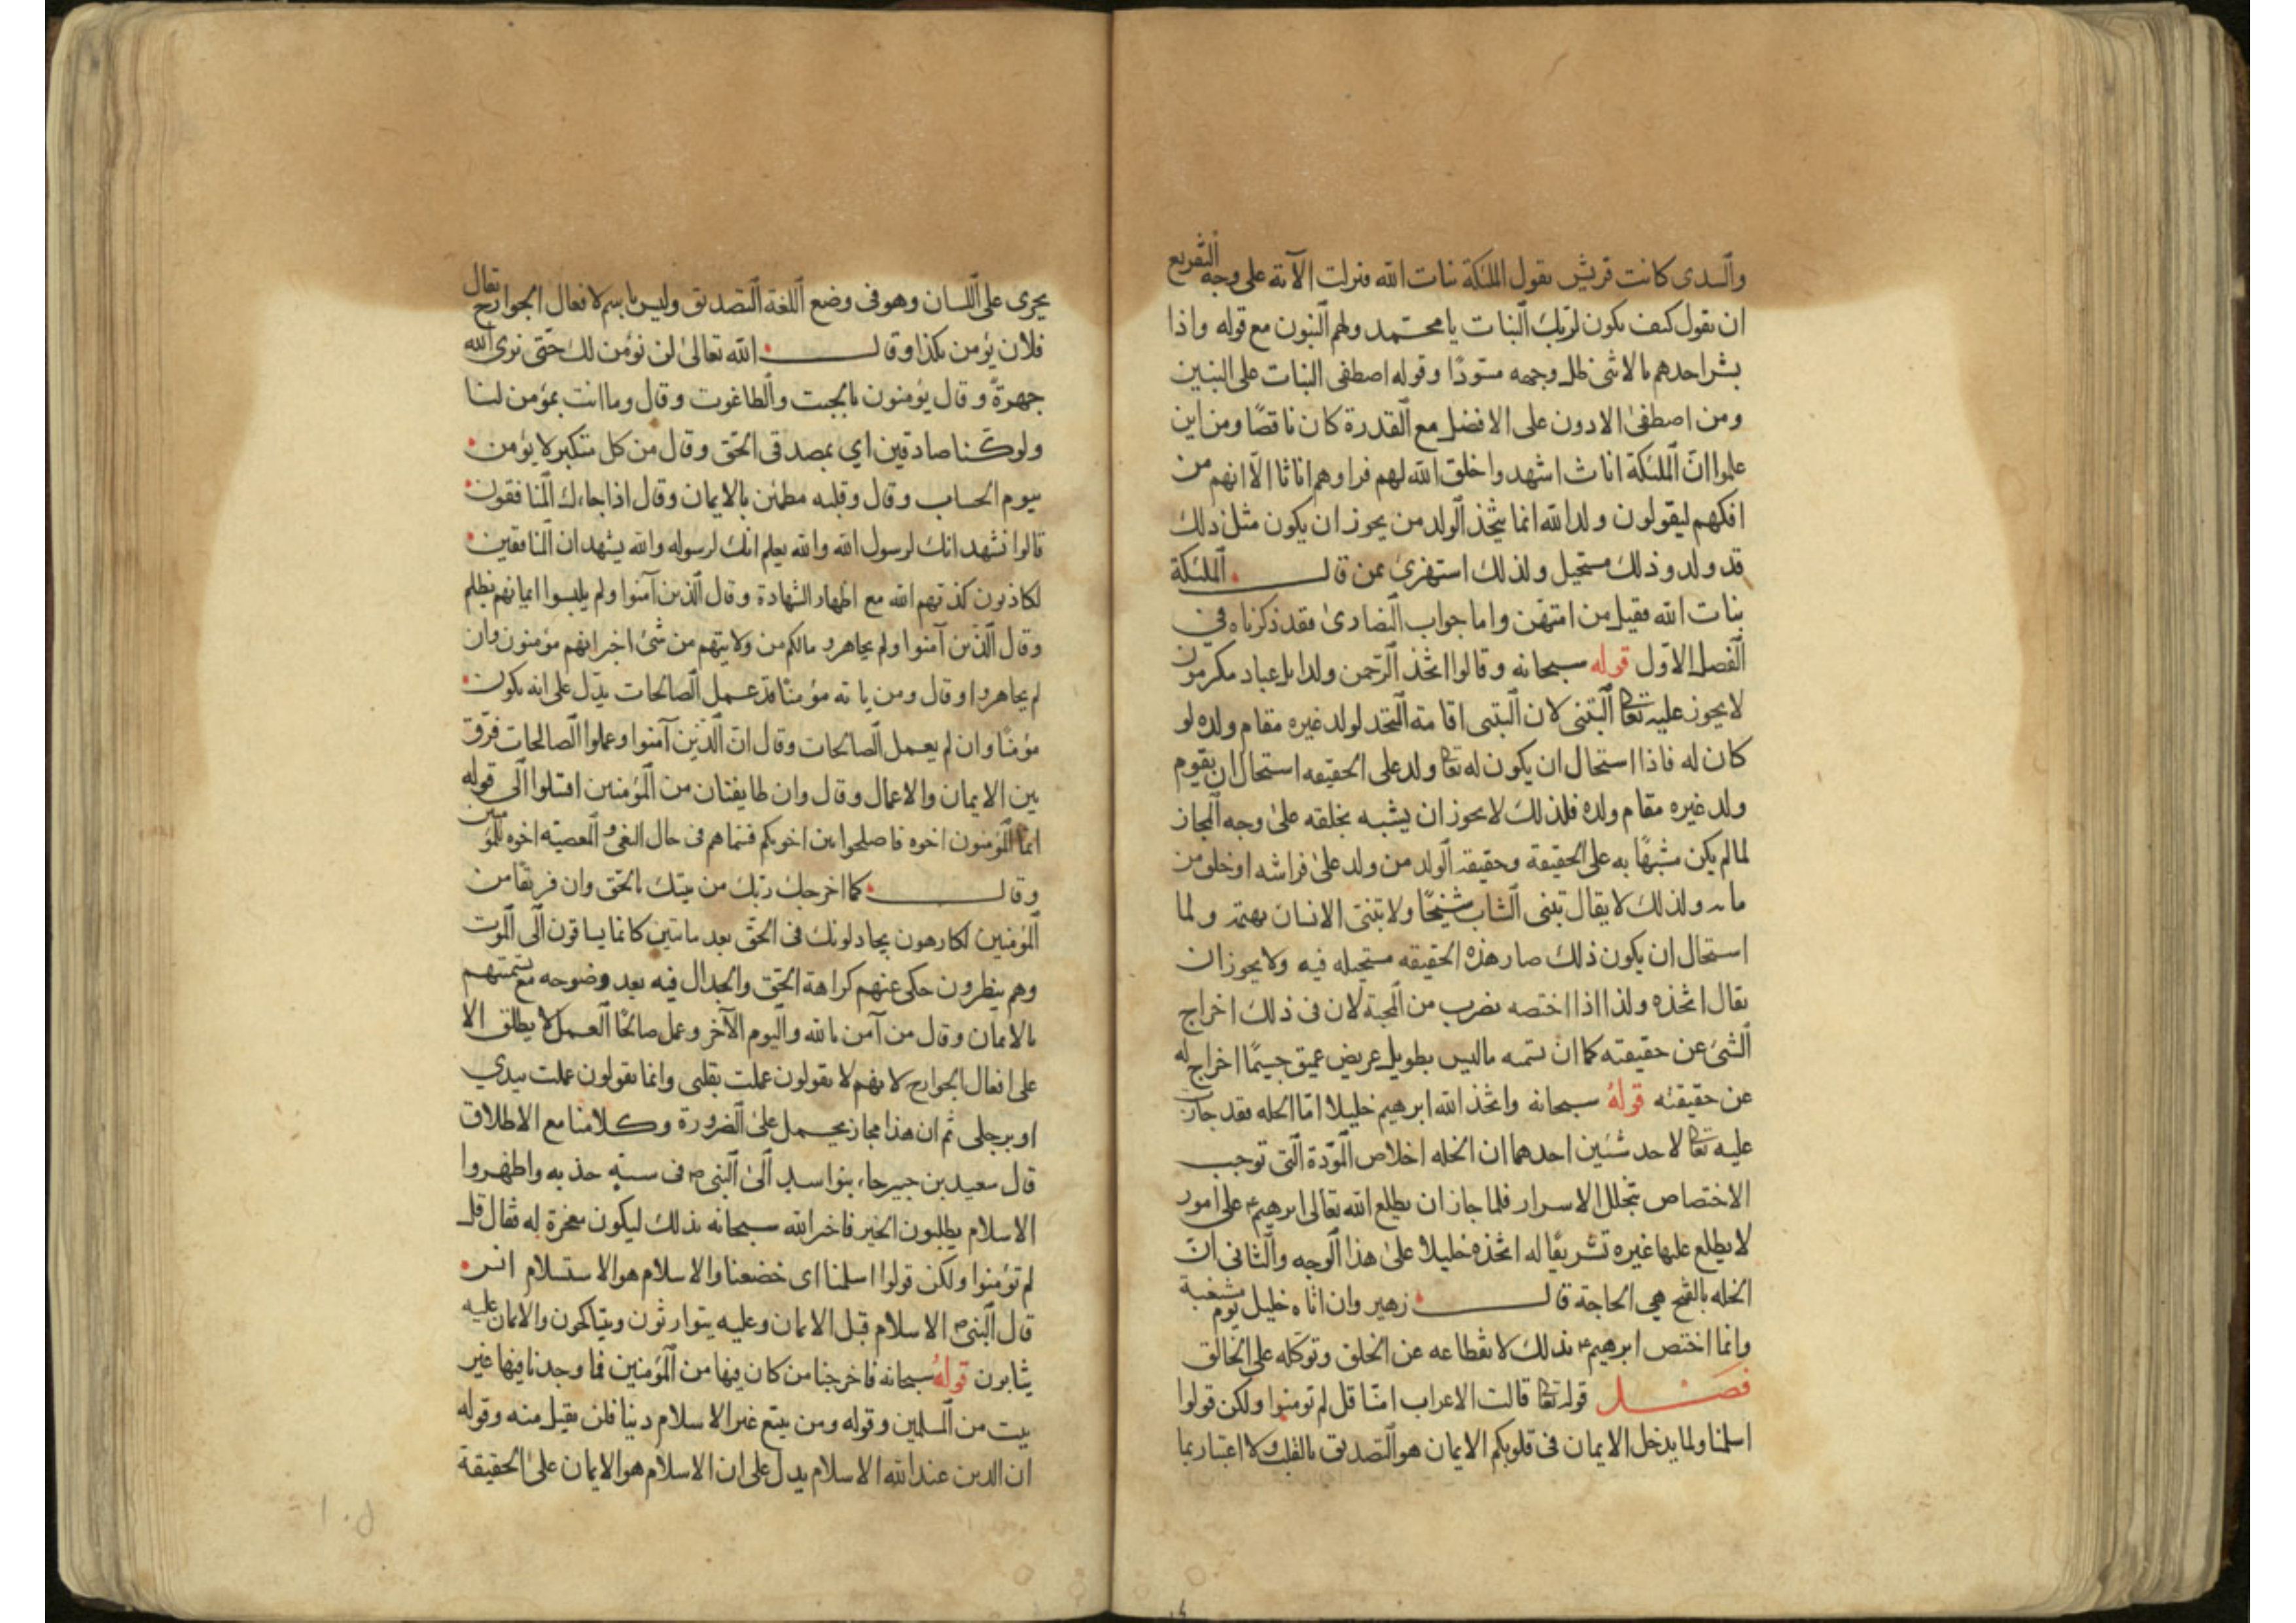 والسدى كانت قريش يقول الملئكة بنات الله فنزلت الآية على وجه التقريع
ان يقول كيف يكون لربك البنات يا محمد ولهم البنون مع قوله واذا
بشر احدهم بالانثى ظل وجهه مسودًا وقوله اصطفى البنات على البنين
ومن اصطفى الادون على الافضل مع القدرة كان ناقصًا ومن اين
علموا انّ الملئكة اناث اشهدوا خلق الله لهم فراوهم اناثا الّا انهم من
افكهم ليقولون ولد الله انما يتخذ الولد من يجوز ان يكون مثل ذلك
قد ولد وذلك مستحيل ولذلك استهزئ بمن قال الملئكة
بنات الله فقيل من امتهن واما جواب النصارى فقد ذكرناه في
الفصل الاول قوله سبحانه وقالوا اتخذ الرحمن ولدا بل عباد مكرمون
لا يجوز عليه تعا التبنى لان التبنى اقامة المتخذ لولد غيره مقام ولده لو
كان له فاذا استحال ان يكون له تعا ولد على الحقيقه استحال ان يقوم
ولد غيره مقام ولده فلذلك لا يجوز ان يشبه بخلقه على وجه المجاز
لما لم يكن مشبهًا به على الحقيقة وحقيقة الولد من ولد على فراشه او خلق من
مائه ولذلك لا يقال تبنى الشاب شيخًا ولا تبنى الانسان بهيمة ولما
استحال ان يكون ذلك صار هذه الحقيقه مستحيله فيه ولا يجوز ان
يقال اتخذه ولدا اذا اختصه بضرب من المحبة لان فى ذلك اخراج
الشئ عن حقيقته كما ان تسمه ما ليس بطويل عريض عميق جسيمًا اخراج له
عن حقيقته قوله سبحانه واتخذ الله ابرهيم خليلا امّا الخله فقد جازت
عليه تعا لاحد شئين احدهما ان الخله اخلاص المودّة التى توجب
الاختصاص بتخلل الاسرار فلما جاز ان يطلع الله تعالى ابرهيم ع على امور
لا يطلع عليها غيره تشريفًا له اتخذه خليلا على هذا الوجه والثانى انّ
الخله بالفتح هي الحاجة قال زهير وان اتاه خليل يوم مسغبة
وانما اختص ابرهيم ع بذلك لانقطاعه عن الخلق وتوكله على الخالق
فصل قوله تعا قالت الاعراب امنّا قل لم تومنوا ولكن قولوا
اسلمنا ولما يدخل الايمان فى قلوبكم الايمان هو التصديق بالقلب ولا اعتبار بما
يجرى على اللسان وهو فى وضع اللغة التصديق وليس باسم لافعال الجوارح يقال
فلان يؤمن بكذا وقال الله تعالى لن نؤمن لك حتّى نرى الله
جهرةً وقال يؤمنون بالجبت والطاغوت وقال وما انت بمؤمن لنا
ولو كنا صادقين اي بمصدق الحق وقال من كل متكبر لا يؤمن
بيوم الحساب وقال وقلبه مطمئن بالايمان وقال اذا جاءك المنافقون
قالوا نشهد انك لرسول الله والله يعلم انك لرسوله والله يشهد ان المنافقين
لكاذبون كذبهم الله مع اظهار الشهادة وقال الذين آمنوا ولم يلبسوا ايمانهم بظلم
وقال الذين آمنوا ولم يهاجروا مالكم من ولايتهم من شئ اخبر انهم مؤمنون وان
لم يهاجروا وقال ومن ياته مؤمنًا قد عمل الصالحات يدّل على انه يكون
مؤمنًا وان لم يعمل الصالحات وقال انّ الذين آمنوا وعملوا الصالحات فرّق
بين الايمان والاعمال وقال وان طايفتان من المؤمنين اقتتلوا الى قوله
انما المؤمنون اخوه فاصلحوا بين اخويكم فسماهم فى حال البغى والمعصية اخوه للمؤمنين
وقال كما اخرجك ربّك من بيتك بالحق وان فريقًا من
المؤمنين لكارهون يجادلونك فى الحق بعد ما تبين كانما يساقون الى الموت
وهم ينظرون حكى عنهم كراهة الحق والجدال فيه بعد وضوحه مع تسميتهم
بالايمان وقال من آمن بالله واليوم الآخر وعمل صالحًا العمل لا يطلق الا
على افعال الجوارح لانهم لا يقولون عملت بقلبى وانما يقولون عملت بيدي
او برجلى ثم ان هذا مجاز يحمل على الضرورة وكلامنا مع الاطلاق
قال سعيد بن جبير جاء بنو اسد الى النبى ص فى سنة جدبه واظهروا
الاسلام يطلبون الخير فاخبر الله سبحانه بذلك ليكون معجزة له فقال قل
لم تؤمنوا ولكن قولوا اسلمنا اى خضعنا والاسلام هو الاستسلام انس
قال النبى ص الاسلام قبل الايمان وعليه يتوارثون ويتناكحون والايمان عليه
يثابون قوله سبحانه فاخرجنا من كان فيها من المؤمنين فما وجدنا فيها غير
بيت من المسلمين وقوله ومن يبتغ غير الاسلام دينا فلن يقبل منه وقوله
ان الدين عند الله الاسلام يدل على ان الاسلام هو الايمان على الحقيقة